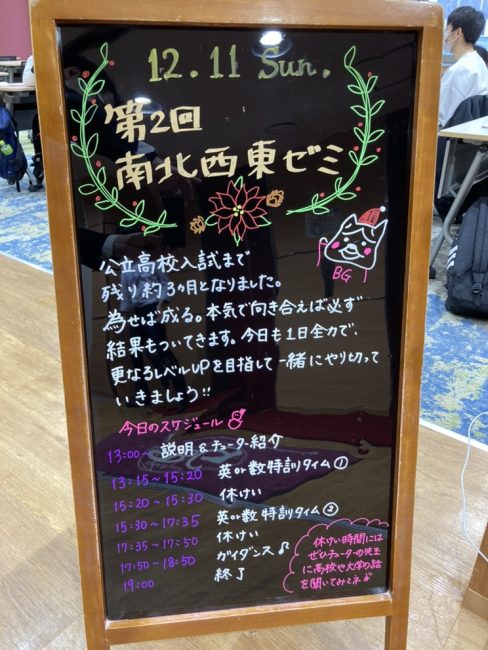 12.11 Sun.
第2回
南北西東ゼミ
BG
公立高校入試まで
残り約3ヶ月となりました。
為せば成る。本気で向き合えば必ず
結果もついてきます。今日も1日全力で、
更なるレベルUPを目指して一緒にやり切って
いきましょう!!
今日のスケジュール
13:00~ 説明&チューター紹介
13:15~15:20 英or数特訓タイム①
15:20~15:30 休けい
15:30~17:35 英or数特訓タイム②
17:35~17:50 休けい
17:50~18:50 ガイダンス♫
19:00 終了
休けい時間には
ぜひチューターの先生
に高校や大学の話
を聞いてみてネ♪